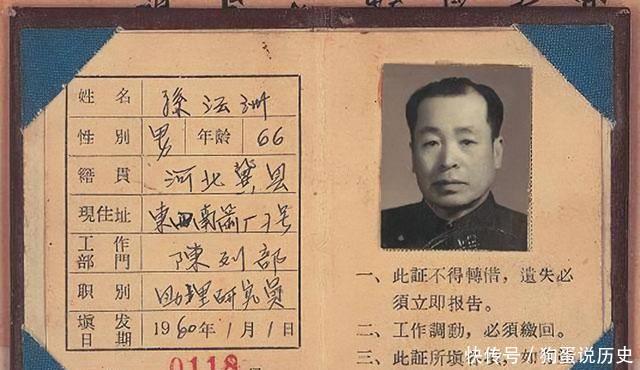 姓名 孫法洲
性別 男 年龄 66
籍貫 河北冀县
現住址 東四南箭厂7号
工作部門 陳列部
职別 助理研究員
填发日期 1960年1月1日
0118
一、此証不得轉借，遺失必
須立即报告。
二、工作調動，必須繳回。
三、此証所填
快传号/狗蛋说历史